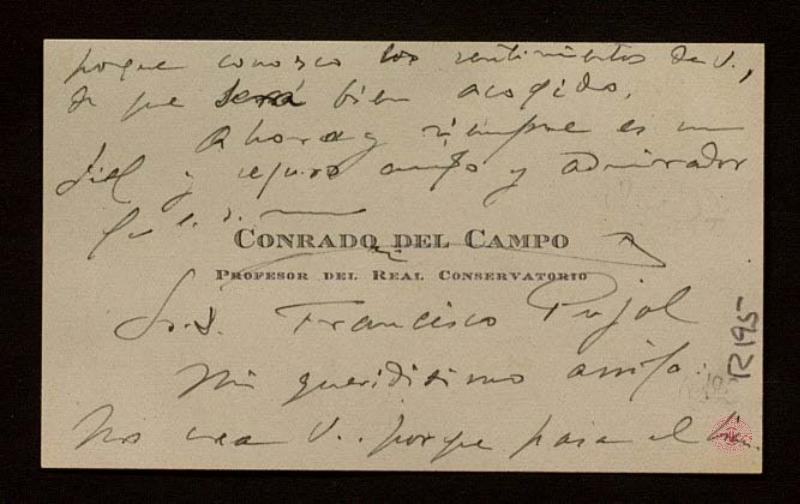 porque conozco los sentimientos de V.,
de que será bien acogido.
Ahora y siempre es un
fiel y seguro amigo y admirador
q. e. s. m.
CONRADO DEL CAMPO
PROFESOR DEL REAL CONSERVATORIO
Sr. D. Francisco Pujol
Mi queridisimo amigo:
No crea V. porque pasa el tiem.
R195